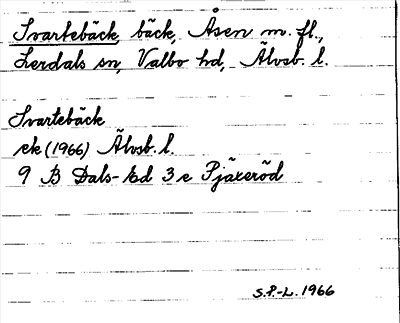 Svartebäck, bäck, Åsen m. fl.,
Lerdals sn, Valbo hd, Älvsb. l.
Svartebäck
ek (1966) Älvsb. l.
9 B Dals-Ed 3 e Pjäxeröd
S.P.-L. 1966